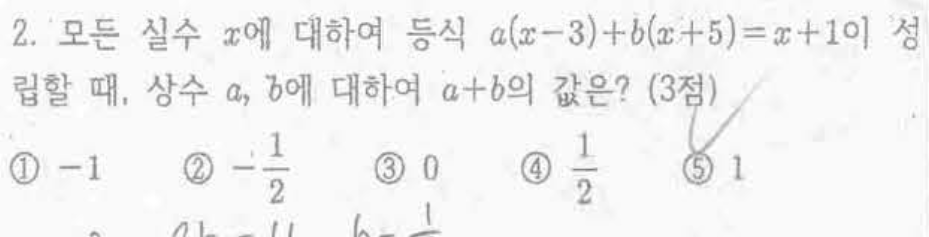 2. 모든 실수 x에 대하여 등식 a(x-3)+b(x+5)=x+1이 성
립할 때, 상수 a, b에 대하여 a+b의 값은? (3점)
① -1 ② -1/2 ③ 0 ④ 1/2 ⑤ 1